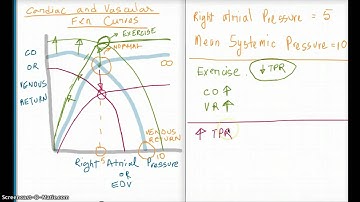 Cardiac and Vascular
Fxn Curves
EXERCISE
NORMAL
CO
OR
VENOUS
RETURN
CO
VENOUS
RETURN
5
10
Right Atrial Pressure
OR
EDV
Right Atrial Pressure = 5
Mean Systemic Pressure = 10
Exercise ↓ TPR
CO ↑
VR ↑
↑ TPR
Screencast-O-Matic.com